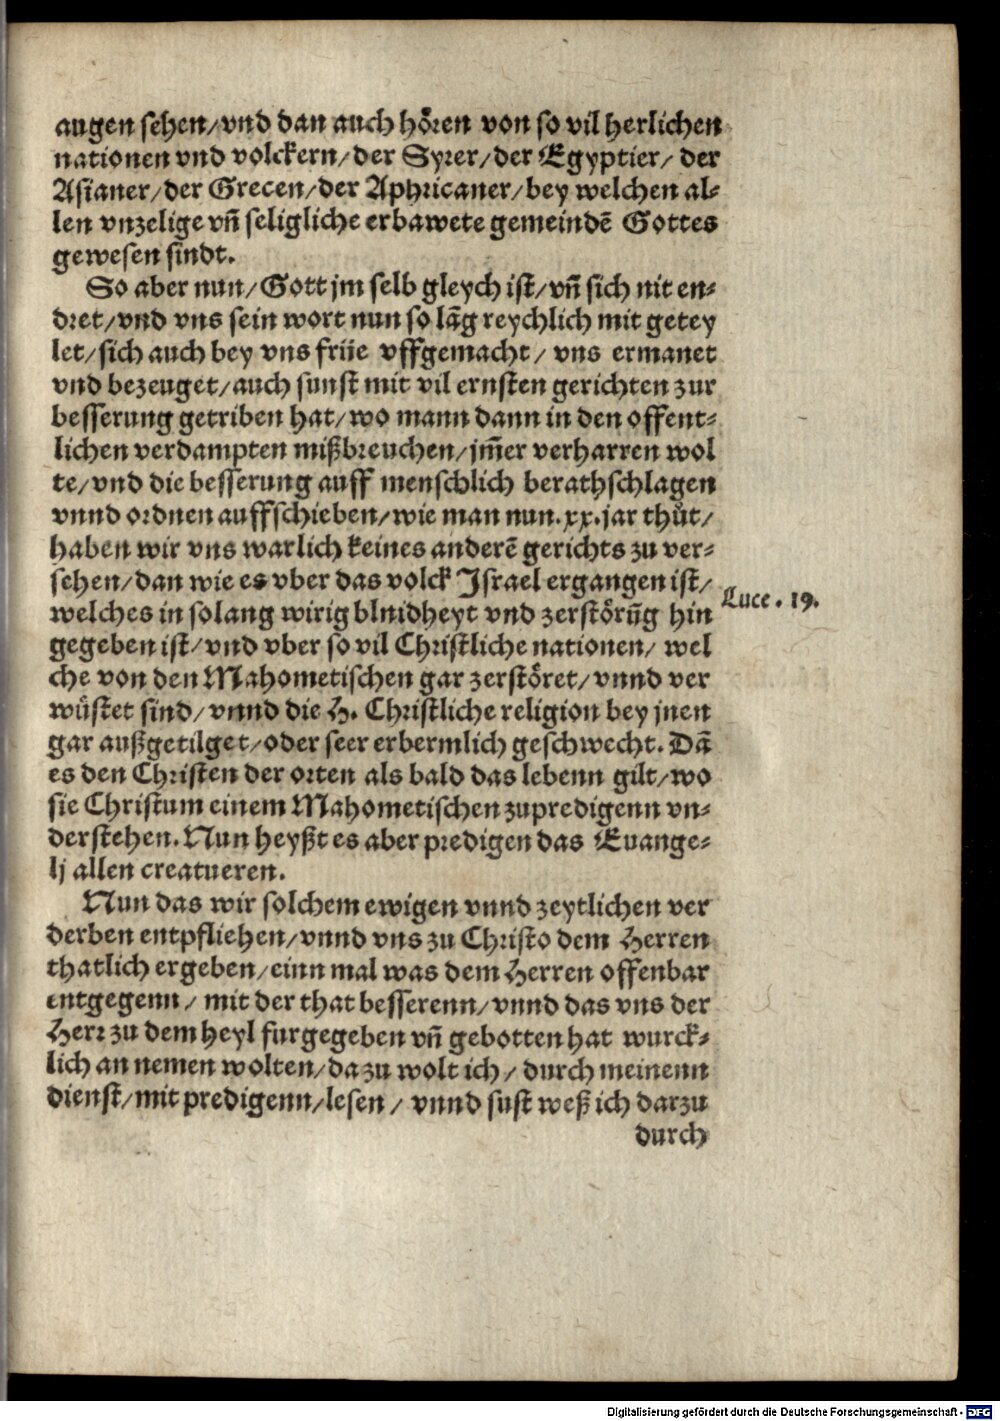 augen sehen/vnd dan auch hoͤren von so vil herlichen
nationen vnd volckern/der Syrer/der Egyptier/ der
Asianer/der Grecen/der Aphricaner/bey welchen al⸗
len vnzelige vñ seligliche erbawete gemeindē Gottes
gewesen sindt.
So aber nun/Gott jm selb gleych ist/vñ sich nit en⸗
dret/vnd vns sein wort nun so lãg reychlich mit getey
let/sich auch bey vns frije vffgemacht/ vns ermanet
vnd bezeuget/auch sunst mit vil ernsten gerichten zur
besserung getriben hat/wo mann dann in den offent⸗
lichen verdampten mißbreuchen/jm̃er verharren wol
te/vnd die besserung auff menschlich berathschlagen
vnnd ordnen auffschieben/wie man nun.xx.jar thuͤt/
haben wir vns warlich keines anderē gerichts zu ver⸗
sehen/dan wie es vber das volck Israel ergangen ist/
Luce. 19.
welches in solang wirig blnidheyt vnd zerstoͤrũg hin
gegeben ist/vnd vber so vil Christliche nationen/ wel
che von den Mahometischen gar zerstoͤret/vnnd ver
wuͤstet sind/vnnd die H. Christliche religion bey jnen
gar außgetilget/oder seer erbermlich geschwecht. Dã
es den Christen der orten als bald das lebenn gilt/wo
sie Christum einem Mahometischen zupredigenn vn⸗
derstehen. Nun heyßt es aber predigen das Euange⸗
lj allen creatueren.
Nun das wir solchem ewigen vnnd zeytlichen ver
derben entpfliehen/vnnd vns zu Christo dem Herren
thatlich ergeben/einn mal was dem Herren offenbar
entgegenn/ mit der that besserenn/vnnd das vns der
Herr zu dem heyl furgegeben vñ gebotten hat wurck⸗
lich an nemen wolten/dazu wolt ich/ durch meinenn
dienst/mit predigenn/lesen/ vnnd sust weß ich darzu
durch
Digitalisierung gefördert durch die Deutsche Forschungsgemeinschaft - DFG